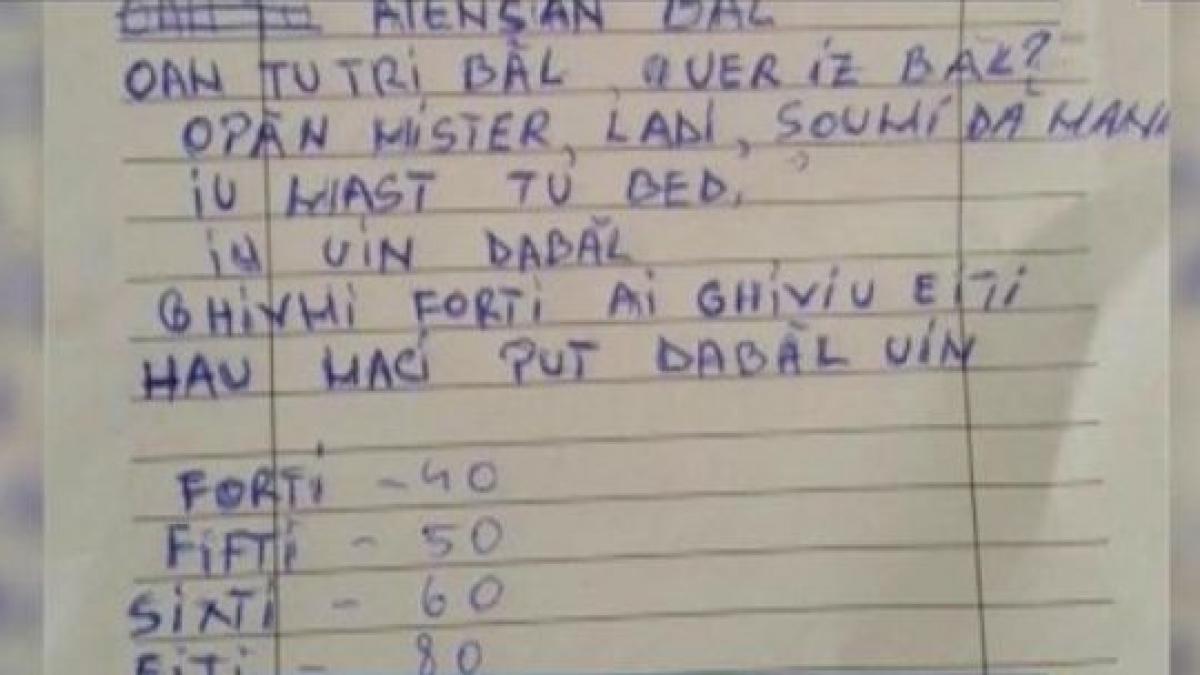 ATENȘĂN BĂL
OAN TU TRI BĂL, QUER IZ BĂL?
OPĂN MISTER, LADI, SOUMI DĂ MANI
IU MAST TU BED,
IU UIN DABĂL
GHIVMI FORTI AI GHIVIU EITI
HAU MACI PUT DABĂL UIN
FORTI - 40
FIFTI - 50
SIXTI - 60
EITI - 80